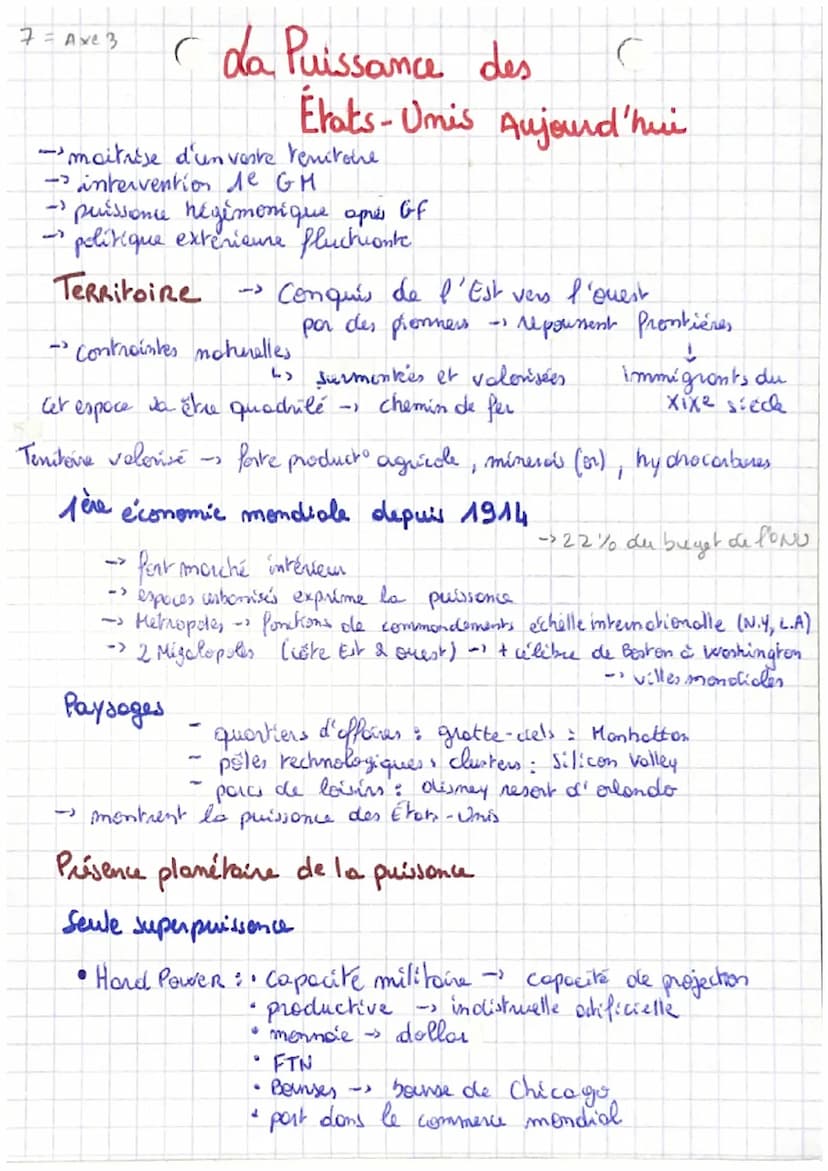 7 = Axe 3
La Puissance des
États-Unis Aujourd'hui
→ maitrise d'un vaste territoire
→ intervention 1e GM
→ puissance hégémonique après GF
→ politique extérieure fluctuante
TERRitoiRE → Conquis de l'Est vers l'ouest
par des pionners → repoussent frontières
→ contraintes naturelles ↓
↳ surmontées et valorisées immigrants du
Cet espace va être quadrilé → chemin de fer XIXe siècle
Territoire valorisé → forte product° agricole, minerais (or), hydrocarbures
1ère économie mondiale depuis 1914
→ 22% du buget de l'ONU
→ fort marché intérieur
→ espaces urbanisés exprime la puissance
→ Métropoles → fonctions de commandements échelle internationalle (N.Y, L.A)
→ 2 Mégalopoles (côte Est & ouest) → + célèbre de Boston à Washington
→ villes mondiales
Paysages
- quartiers d'affaires : gratte-ciels : Manhattan
- pôles technologiques, clusters : Silicon Valley
- parcs de loisirs : disney resort d'orlando
→ montrent la puissance des États-Unis
Présence planétaire de la puissance
Seule superpuissance
• Hard Power : • capacité militaire → capacité de projection
• productive → indistruelle
• monnaie → dollar
• FTN
• Bourses → bourse de Chicago
• part dans le commerce mondial